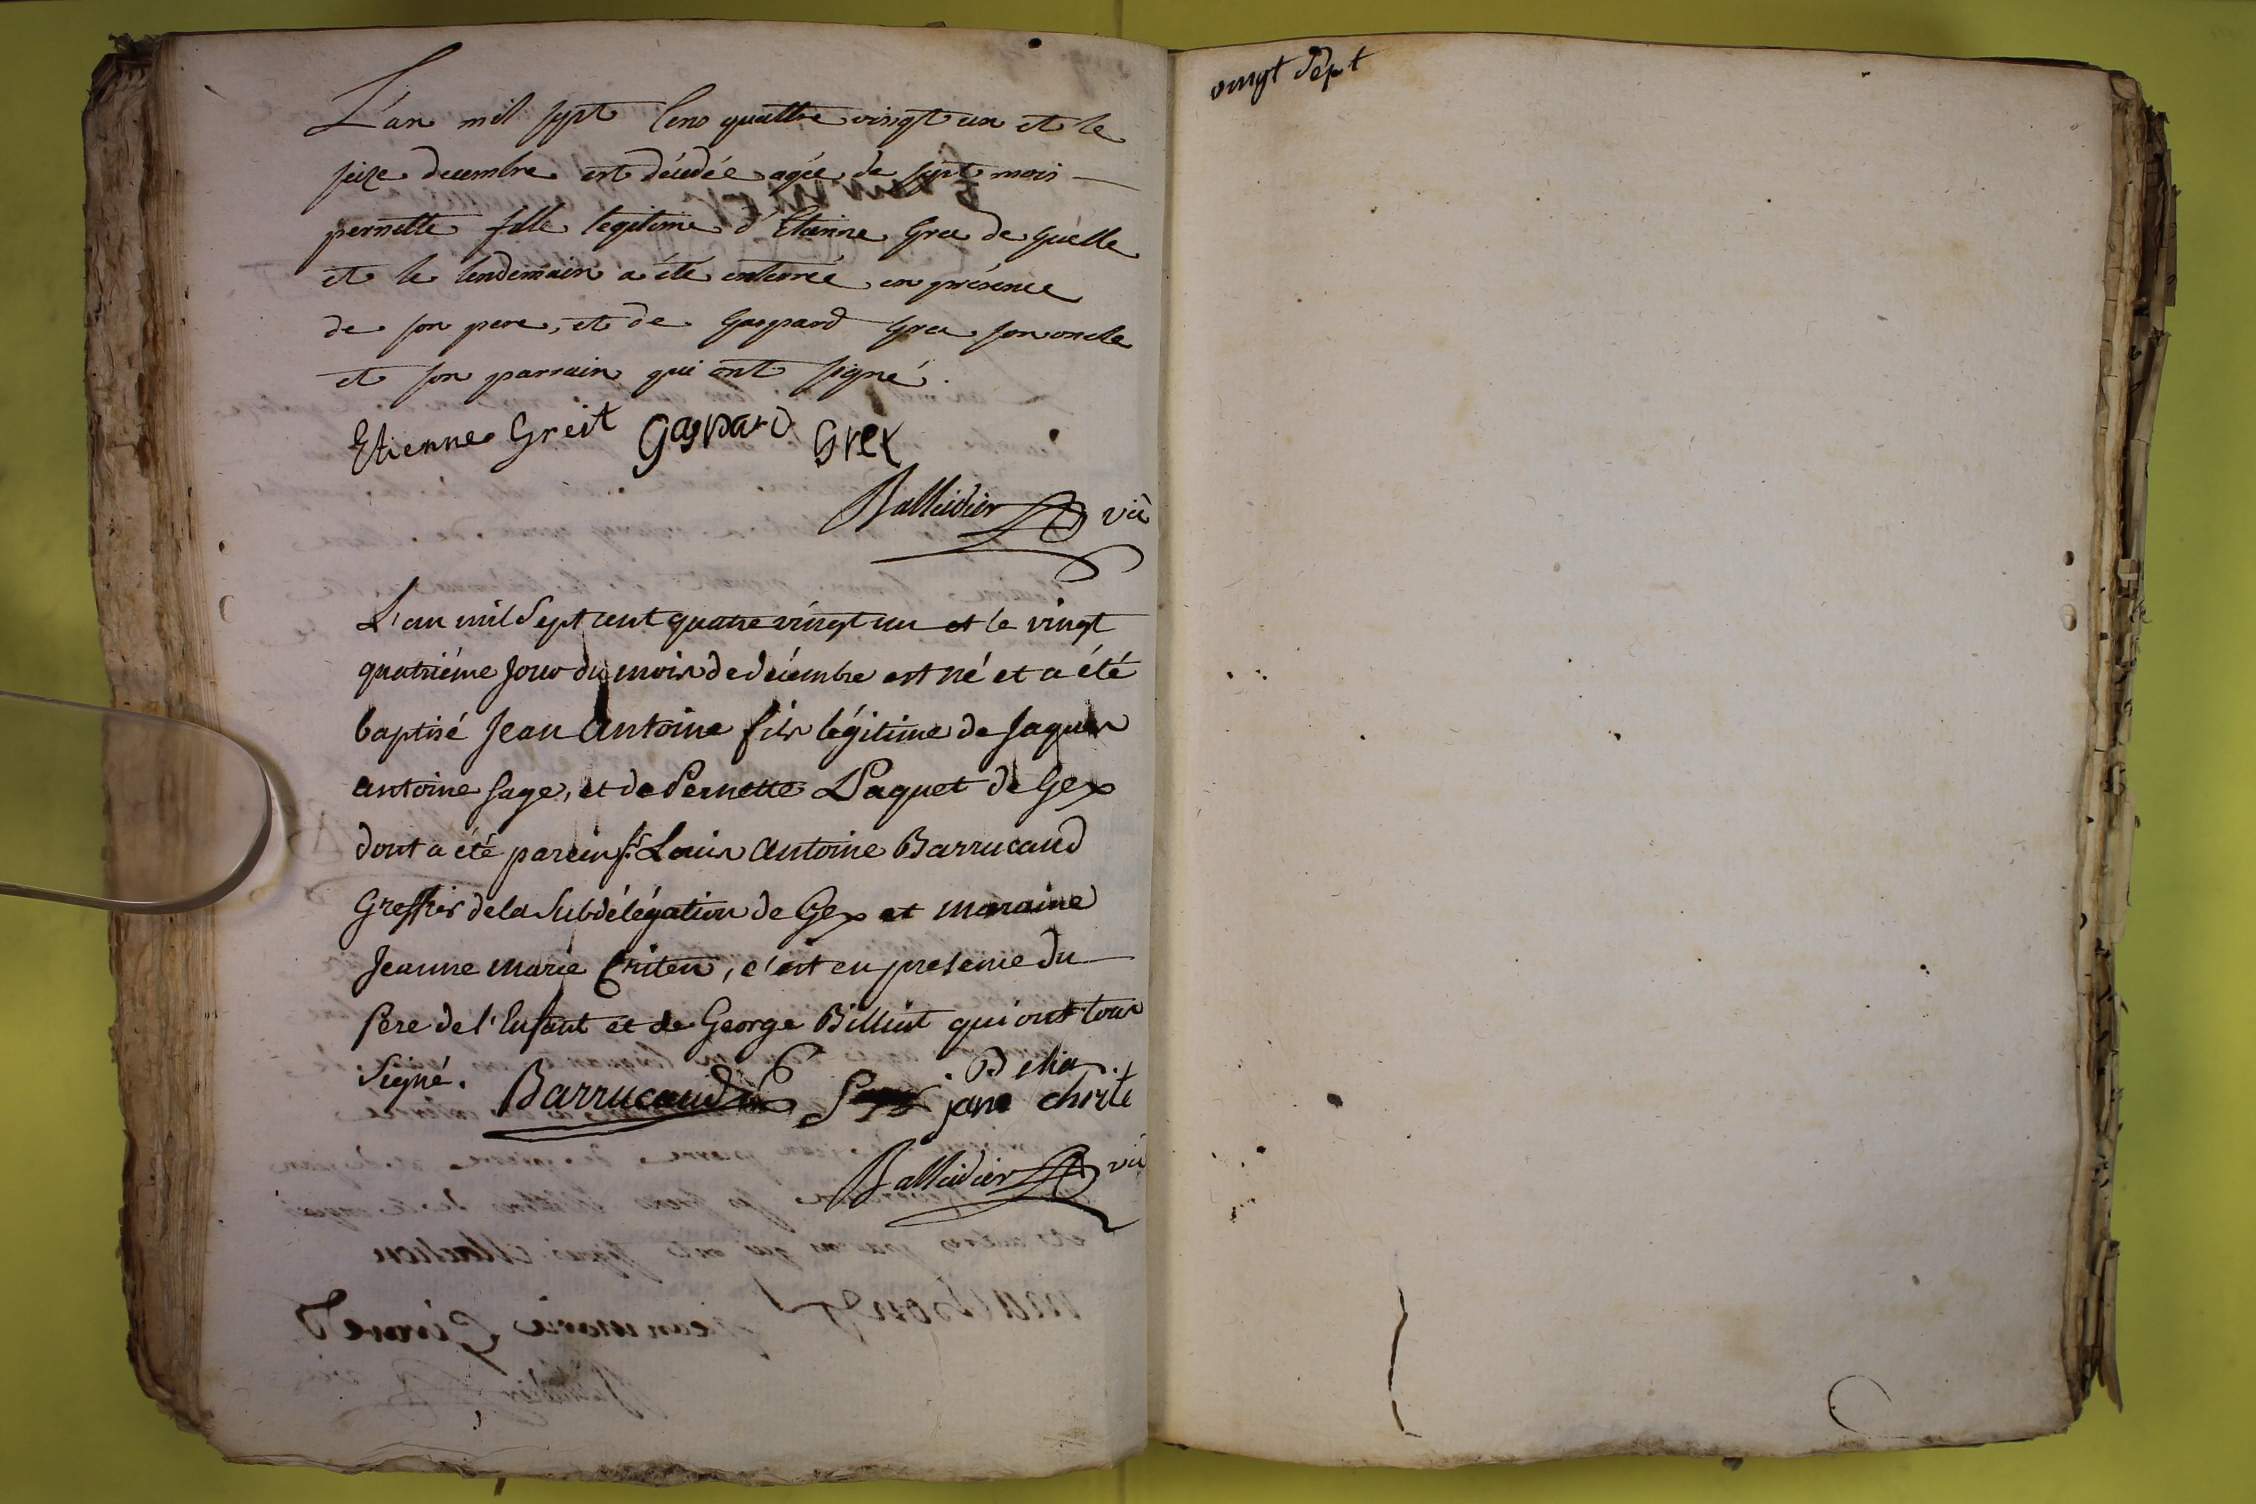 L'an mil sept cens quattre vingt un et le
seize decembre est décédée agée de sept mois
pernette fille legitime d'Etienne Grex de Gex
et le lendemain a été enterrée en présence
de son pere, et de Gaspard Grex son oncle
et son parrain qui ont signé.
Etienne Greit Gaspard Grex
Ballieidier vic
L'an mil Sept cent quatre vingt un et le vingt
quatriéme Jour du mois de décembre est né et a été
baptisé Jean Antoine fils légitime de Jaques
antoine Sage, et de Pernette Paquet de Gex
dont a été parein sr. Louis Antoine Barrucand
Greffier de la Subdélégation de Gex et maraine
Jeanne Marie Criten, c'est en presence du
Pere de l'Enfant et de George Billiut qui ont tous
Signé. Barrucand jane christe
Ballieidier vic
vingt Sept